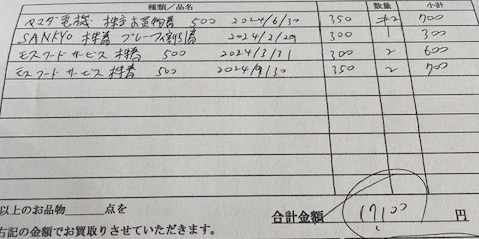 種類／品名 数量 小計
ヤマダ電機 株主お買物券 500 2024/6/30 350 2 700
SANKYO 株券 プレーフィ割引券 2024/2/29 300 1 300
モスフードサービス 株券 500 2024/3/31 300 2 600
モスフードサービス 株券 500 2024/9/30 350 2 700
以上のお品物 点を
合計金額 17,100 円
右記の金額でお買取りさせていただきます。